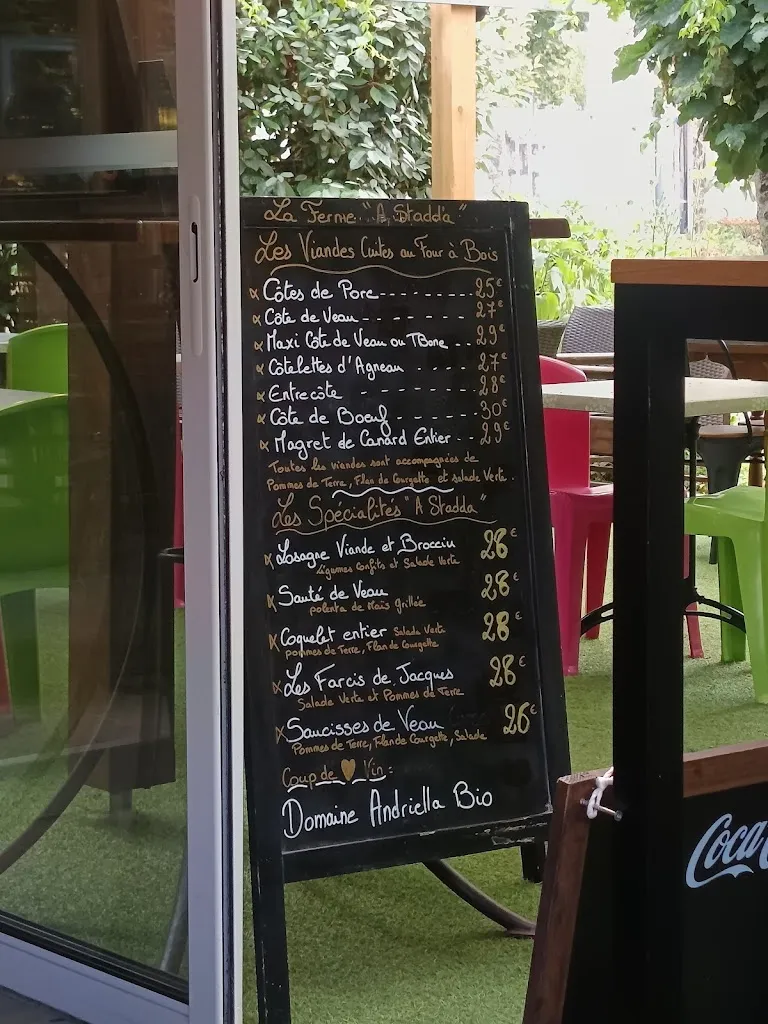 La Ferme "A Stadda"
Les Viandes Cuites au Four à Bois
Côtes de Porc 25€
Côte de Veau 27€
Maxi Côte de Veau ou TBone 29€
Côtelettes d'Agneau 27€
Entrecôte 28€
Côte de Boeuf 30€
Magret de Canard Entier 29€
Toutes les viandes sont accompagnées de
Pommes de Terre, Flan de Courgette et salade Verte.
Les Spécialités "A Stadda"
Lasagne Viande et Brocciu 28€
légumes Confits et Salade Verte
Sauté de Veau 28€
polenta de Maïs grillée
Coquelet entier Salade Verte 28€
pommes de Terre, Flan de Courgette
Les Farcis de Jacques 28€
Salade Verte et Pommes de Terre
Saucisses de Veau 26€
Pommes de Terre, Flan de Courgette, Salade
Coup de ♥ Vin :
Domaine Andriella Bio
Coca